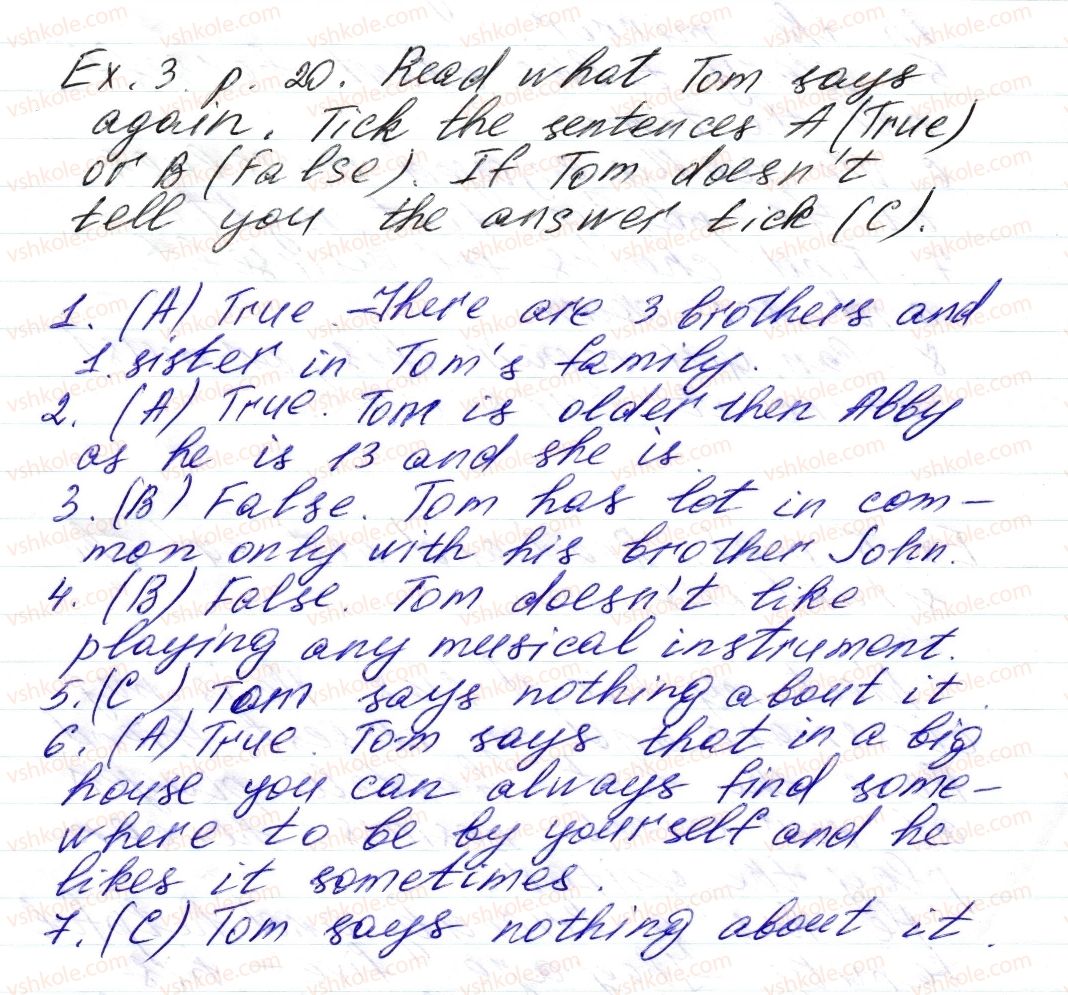 Ex. 3 p. 20. Read what Tom says
again. Tick the sentences A (True)
or B (False). If Tom doesn't
tell you the answer tick (C).
1. (A) True. There are 3 brothers and
1. sister in Tom's family.
2. (A) True. Tom is older then Abby
as he is 13 and she is
3. (B) False. Tom has lot in com-
mon only with his brother John.
4. (B) False. Tom doesn't like
playing any musical instrument.
5. (C) Tom says nothing about it.
6. (A) True. Tom says that in a big
house you can always find some-
where to be by yourself and he
likes it sometimes.
7. (C) Tom says nothing about it.